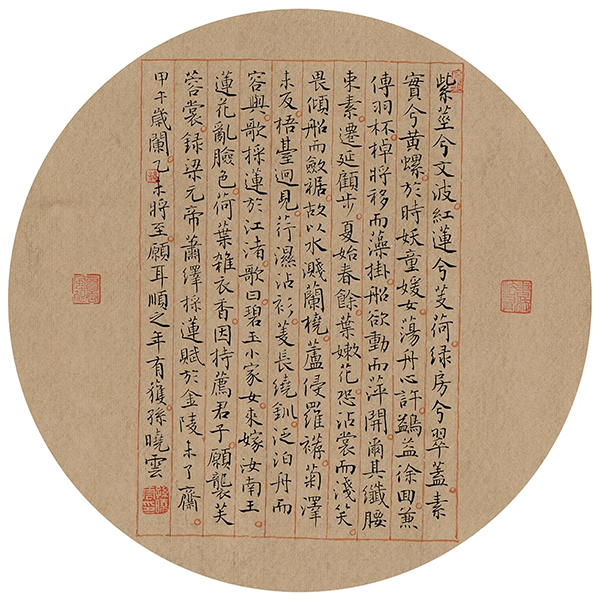 紫莖兮文波紅蓮兮芰荷緑房兮翠蓋素
實兮黃螺於時妖童媛女蕩舟心許鷁益徐回兼
傳羽杯棹將移而藻掛船欲動而萍開爾其纖腰
束素遷延顧步夏始春餘葉嫩花恐沾裳而淺笑
畏傾船而斂裾故以水濺蘭橈蘆侵羅襪菊澤
未反梧臺迥見荇濕沾衫菱長繞釧泛泊舟而
容與歌採蓮於江渚歌曰碧玉小家女來嫁汝南王
蓮花亂臉色荷葉雜衣香因持薦君子願襲芙
蓉裳録梁元帝蕭繹採蓮賦於金陵未了齋
甲午歲闌乙未將至願耳順之年有獲孫曉雲